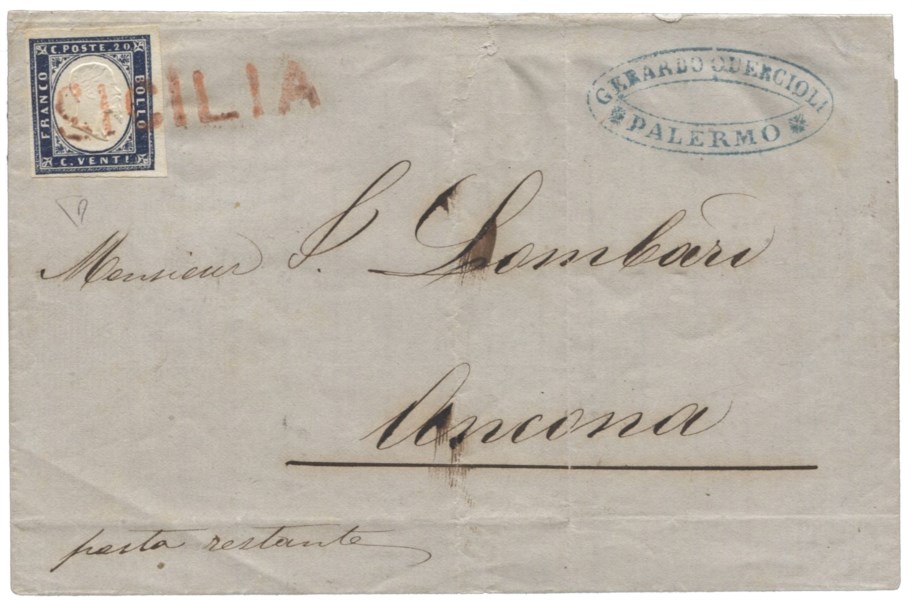 C. POSTE. 20
FRANCO
BOLLO
C. VENTI
SICILIA
GERARDO QUERCIOLI
PALERMO
Monsieur S. Lombari
Ancona
posta restante